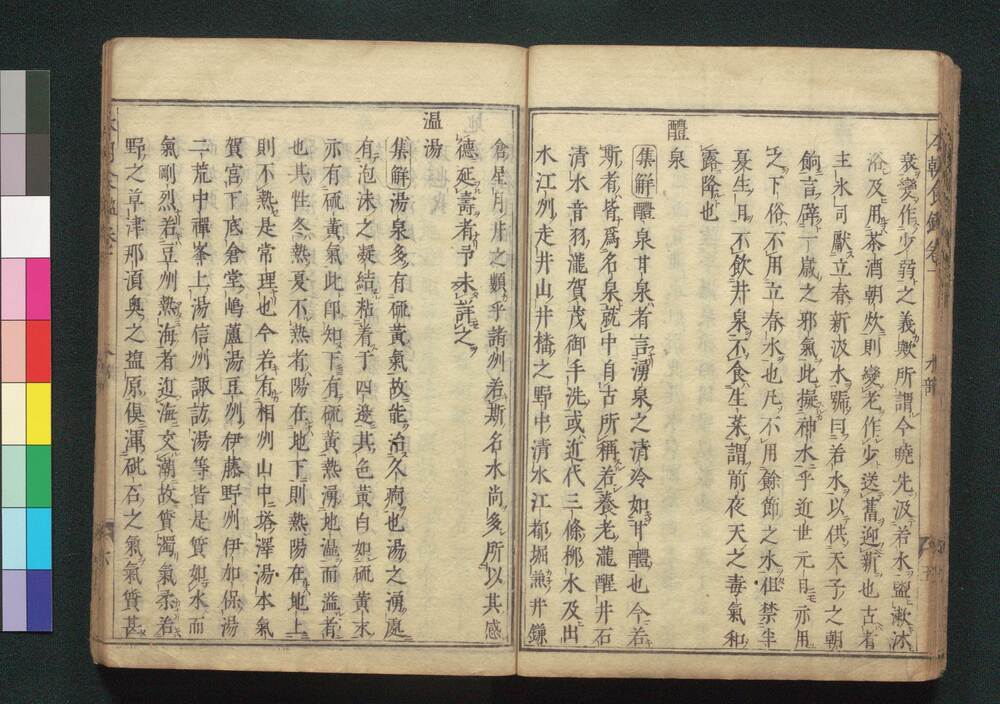 本朝食鑑卷一
水部
衰變作少弱之義歟所謂今曉先汲若水盥漱沐
浴及用茶酒朝炊則變老作少送舊迎新也古者
主水司獻立春新汲水號曰若水以供天子之朝
餉言辟千歲之邪氣此擬神水乎近世元日亦用
之下俗不用立春水也凡不用餘節之水但禁半
夏生日不飲井泉不食生菜謂前夜天之毒氣和
露降也
醴泉
集解醴泉甘泉者言湧泉之清冷如甘醴也今若
斯者皆爲名泉就中自古所稱若養老瀧醒井石
清水音羽瀧賀茂御手洗或近代三條柳水及出
水江州走井山井橋之野中清水江都堀兼井鎌
倉星月井之類乎諸州若斯名水尚多所以其感
德延壽者予未詳之
温湯
集解湯泉多有硫黃氣故能治久痾也湯之湧處
有泡沫之凝結粘着于四邊其色黃白如硫黃末
亦有硫黃氣此卽知下有硫黃熱湧地温而溢者
也其性冬熱夏不熱者陽在地下則熱陽在地上
則不熱是常理也今若有相州山中塔澤湯本氣
賀宮下底倉堂嶋蘆湯豆州伊藤野州伊加保湯
二荒中禪峯上湯信州諏訪湯等皆是質如水而
氣剛烈若豆州熱海者近海交潮故質濁氣柔若
野之草津那須奥之塩原俱渾砒石之氣氣質甚
六